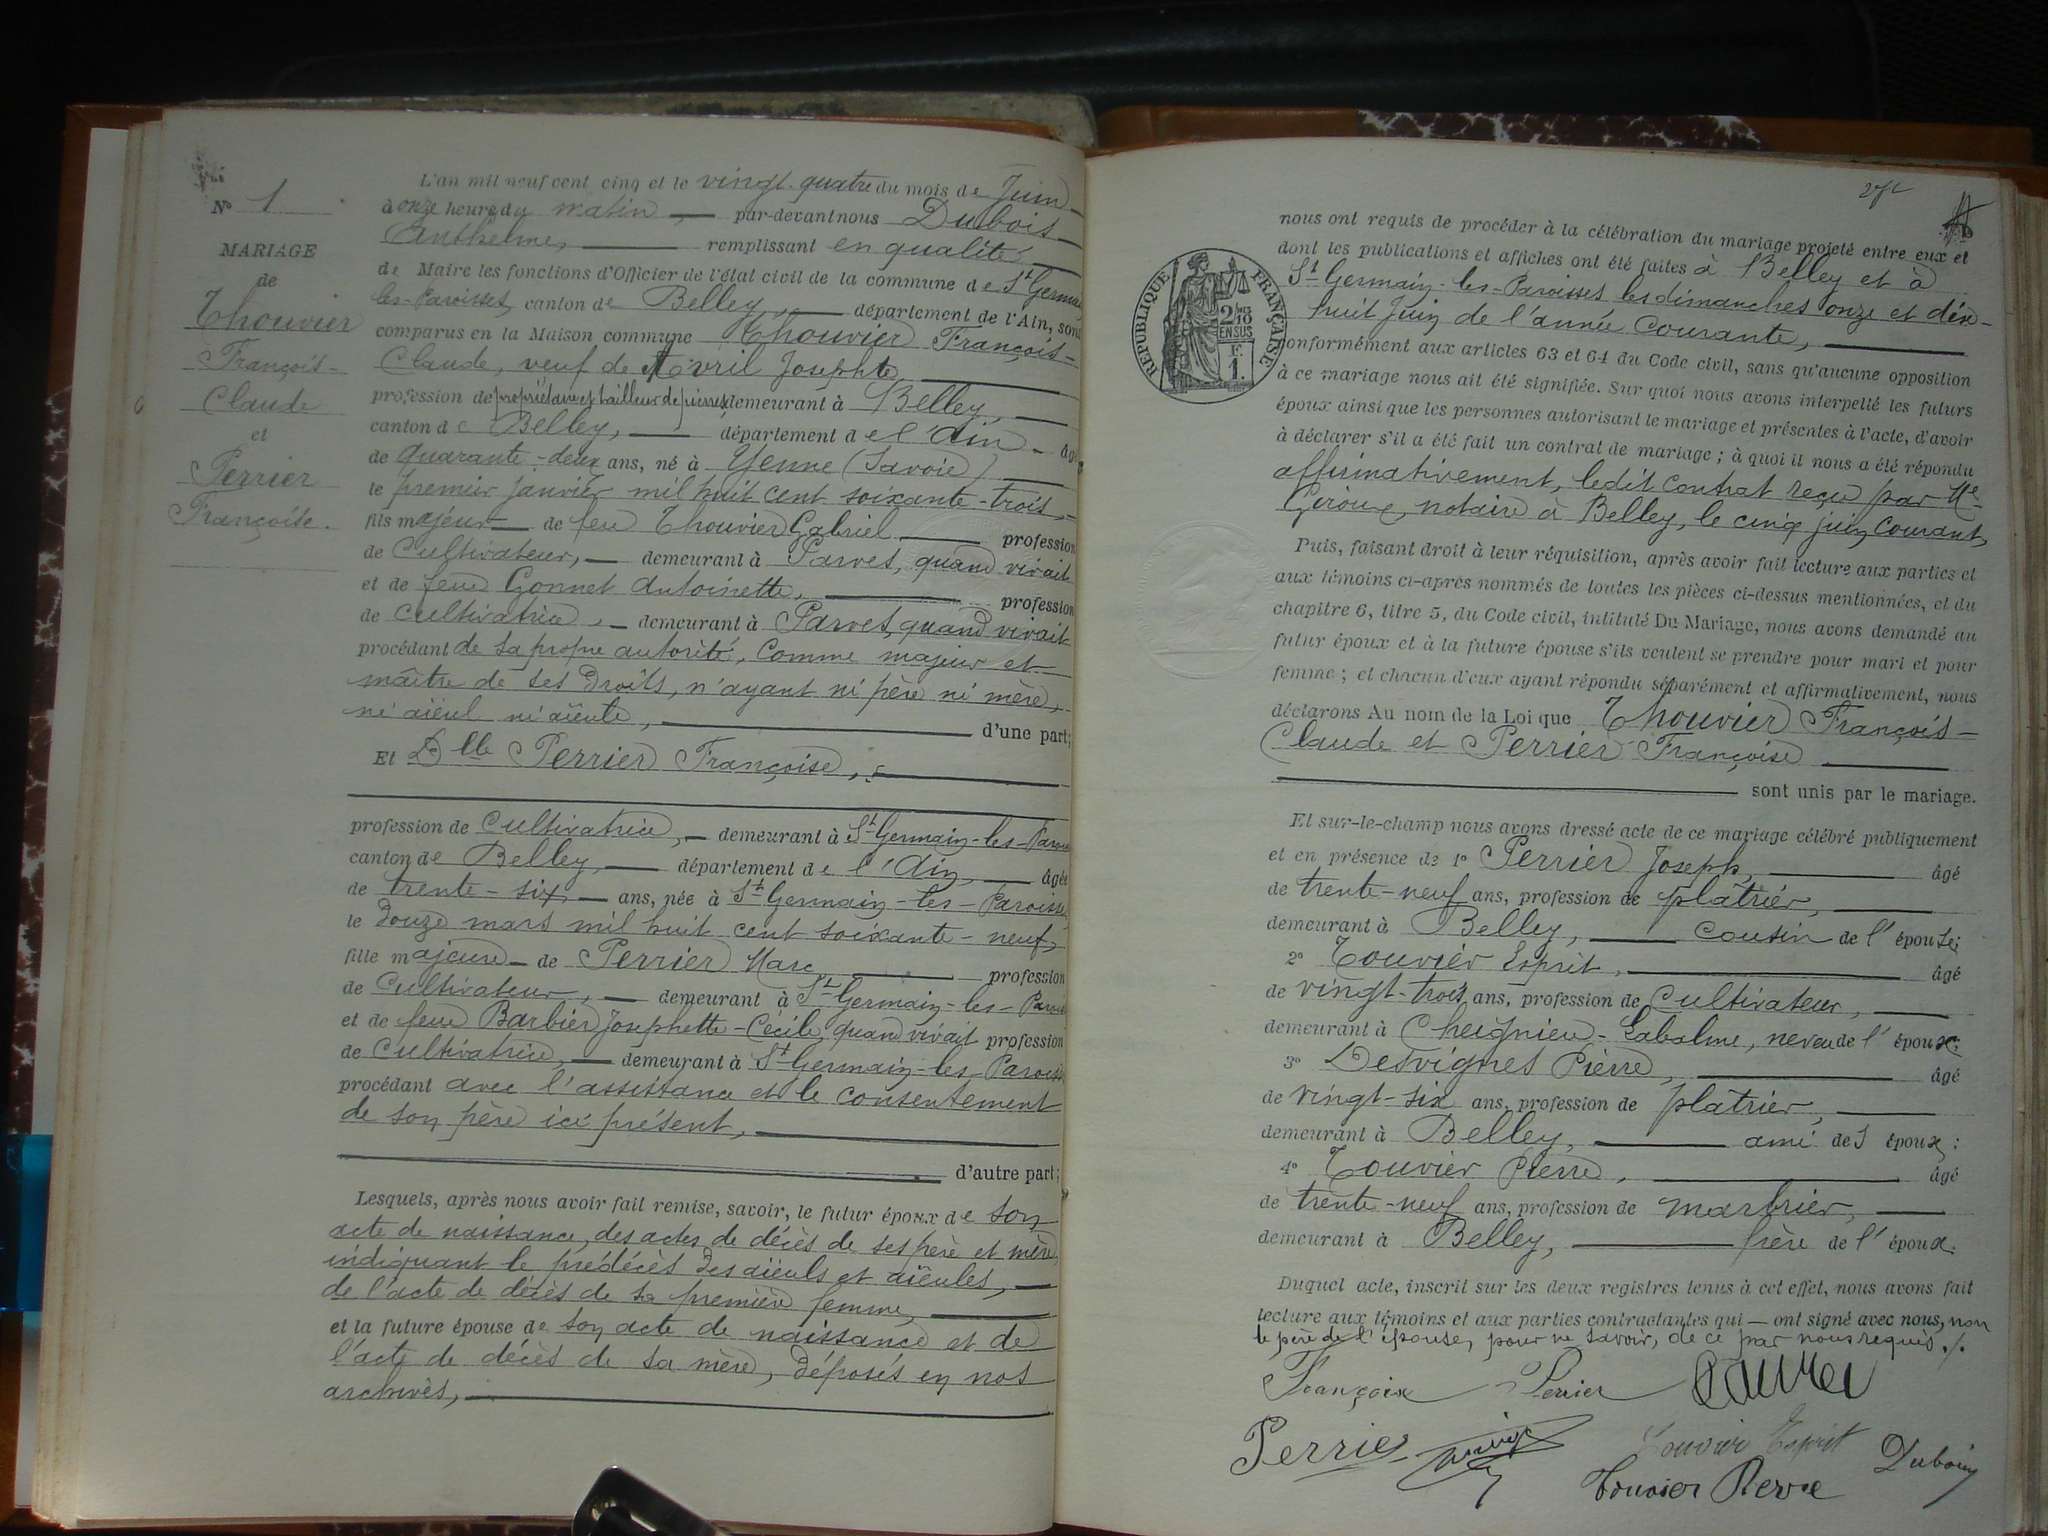 N° 1
MARIAGE
de
Thouvier
François-
Claude
et
Perrier
Françoise.
L'an mil neuf cent cinq et le vingt-quatre du mois de Juin
à onze heures du matin, par-devant nous Dubois
Anthelme, remplissant en qualité
de Maire les fonctions d'Officier de l'état civil de la commune de St Germain
les-Paroisses, canton de Belley, département de l'Ain, sont
comparus en la Maison commune Thouvier François-
Claude, veuf de Avril Josephte,
profession de propriétaire et tailleur de pierres, demeurant à Belley,
canton de Belley, département de l'Ain âgé
de quarante-deux ans, né à Yenne (Savoie)
le premier Janvier mil huit cent soixante-trois,
fils majeur de feu Thouvier Gabriel profession
de Cultivateur, demeurant à Parves, quand vivait
et de feue Gonnet Antoinette, profession
de cultivatrice, demeurant à Parves, quand vivait
procédant de sa propre autorité, comme majeur et
maître de ses droits, n'ayant ni père ni mère,
ni aïeul ni aïeule, d'une part;
Et Dlle Perrier Françoise,
profession de Cultivatrice, demeurant à St Germain-les-Paroisses
canton de Belley, département de l'Ain, âgée
de trente-six ans, née à St Germain-les-Paroisses
le douze mars mil huit cent soixante-neuf,
fille majeure de Perrier Marc profession
de Cultivateur, demeurant à St Germain-les-Paroisses
et de feue Barbier Josephette-Cécile, quand vivait profession
de Cultivatrice, demeurant à St Germain-les-Paroisses
procédant avec l'assistance et le consentement
de son père ici présent,
d'autre part;
Lesquels, après nous avoir fait remise, savoir, le futur époux de son
acte de naissance, des actes de décès de ses père et mère
indiquant le prédécès des aïeuls et aïeules,
de l'acte de décès de sa première femme,
et la future épouse de son acte de naissance et de
l'acte de décès de sa mère, déposés en nos
archives,
nous ont requis de procéder à la célébration du mariage projeté entre eux et
dont les publications et affiches ont été faites à Belley et à
St Germain-les-Paroisses, les dimanches onze et dix-
huit Juin de l'année courante,
conformément aux articles 63 et 64 du Code civil, sans qu'aucune opposition
à ce mariage nous ait été signifiée. Sur quoi nous avons interpellé les futurs
époux ainsi que les personnes autorisant le mariage et présentes à l'acte, d'avoir
à déclarer s'il a été fait un contrat de mariage; à quoi il nous a été répondu
affirmativement, ledit contrat reçu par Me
Giroux, notaire à Belley, le cinq juin courant,
RÉPUBLIQUE FRANÇAISE
2/10
EN SUS
F.
1.
Puis, faisant droit à leur réquisition, après avoir fait lecture aux parties et
aux témoins ci-après nommés de toutes les pièces ci-dessus mentionnées, et du
chapitre 6, titre 5, du Code civil, intitulé Du Mariage, nous avons demandé au
futur époux et à la future épouse s'ils veulent se prendre pour mari et pour
femme; et chacun d'eux ayant répondu séparément et affirmativement, nous
déclarons Au nom de la Loi que Thouvier François-
Claude et Perrier Françoise
sont unis par le mariage.
Et sur-le-champ nous avons dressé acte de ce mariage célébré publiquement
et en présence de 1° Perrier Joseph, âgé
de trente-neuf ans, profession de plâtrier,
demeurant à Belley, cousin de l'épouse;
2° Touvier Esprit, âgé
de vingt-trois ans, profession de Cultivateur,
demeurant à Cheignieu-Labalme, neveu de l'époux;
3° Desvignes Pierre, âgé
de vingt-six ans, profession de plâtrier,
demeurant à Belley, ami des époux:
4° Touvier Pierre, âgé
de trente-neuf ans, profession de marbrier,
demeurant à Belley, frère de l'époux.
Duquel acte, inscrit sur les deux registres tenus à cet effet, nous avons fait
lecture aux témoins et aux parties contractantes qui ont signé avec nous, non
le père de l'épouse, pour ne savoir, de ce par nous requis ./.
Françoise Perrier
Perrier
Touvier Esprit
Dubois
Touvier Pierre